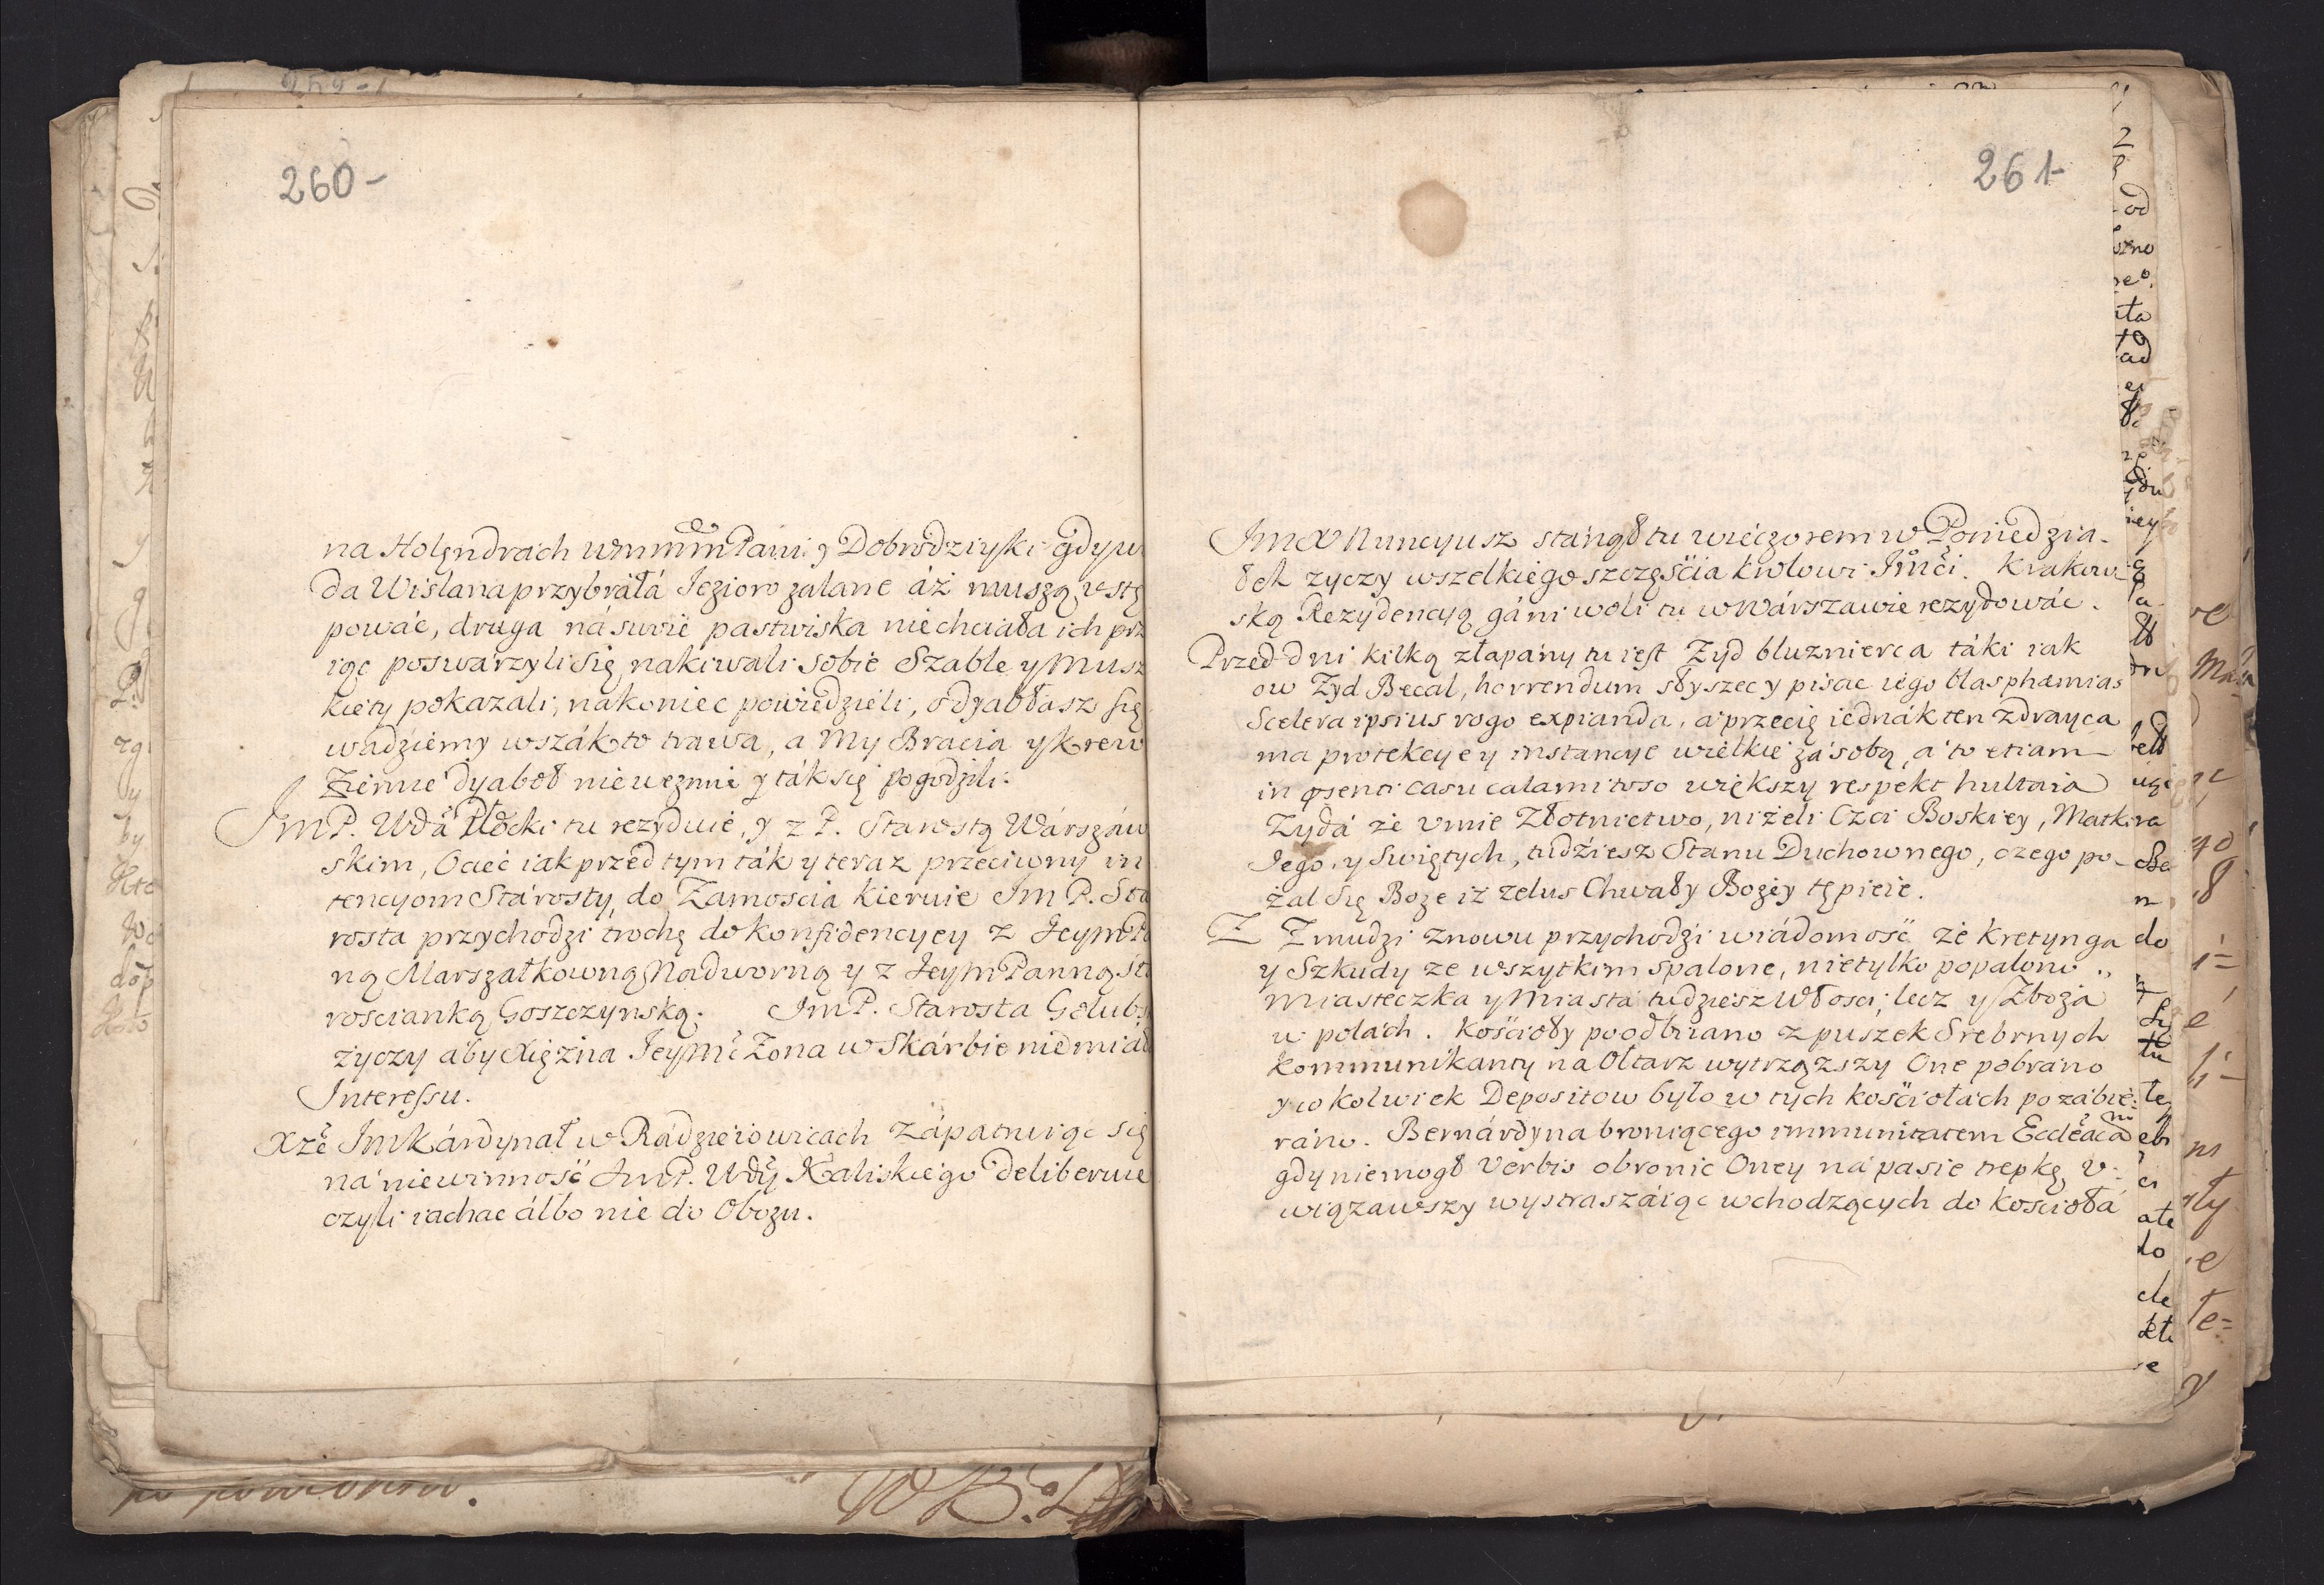 260-
na Holęndrach Pani y Dobrodziyki gdy w
da Wislana przybráłá Iezioro zalane áż muszą vstę
powác, druga ná suszie pastwiska niechciała ich prz
iąc poswarzyli się, nakiwali sobie Szable y Musz
kiety pokazali, nakoniec powiedzieli, o dyabłasz się
wadziemy wszák to trawa, a My Bracia y krew
Ziemie dyaboł niewezmie y ták się pogodzili.
Im P. Wda Płocki tu rezyduie, y z P. Starostą Wárszáw
skim, Ociec iak przed tym ták y teraz przeciwny in
tencyom Stárosty, do Zamoscia kieruie Im P. Sta
rosta przychodzi trochę do konfidencyey z Ieym Pa
ną Marszałkowną Nadworną y z Ieym Panną Sta
roscianką Goszczynską. Im P. Starosta Golubs
życzy áby Xiężna Ieymć Żona w Skárbie niemiáł
Interessu.
Xże Im Kárdynał w Rádzieiowicach Zápatruiąc się
ná niewinność Im P. Wdy Kaliskiego deliberuie
czyli iachac álbo nie do Obozu.
261-
Im X Nuncyusz stánął tu wieczorem w Poniedzia-
łek zyczy wszelkiego szczęścia krolowi Imći. Krakow-
ską Rezydencyą gáni woli tu w Wárszawie rezydowác.
Przed dni kilką złapány tu iest Zyd bluznierca táki iak
ow Zyd Becal, horrendum słyszec y pisac iego blasphæmias
Scelera ipsius rogo expianda, a przecię iednák ten zdrayca
ma protekcye y instancye wielkie zá sobą, a to etiam
in psenti casu calamitoso większy respekt hultaia
Zydá że vmie Złotnictwo, niżeli Czci Boskiey, Matki
Iego, y Swiętych, tudziesz Stanu Duchownego, czego po-
żal się Boze iż zelus Chwały Bozey tępieie.
Z Zmudzi znowu przychodzi wiádomość że Kretynga
y Szkudy ze wszytkim spalone, nietylko popalono
Miasteczka y Miasta tudziesz Włosci, lecz y Zboża
w polách. Kościoły poodbiiano z puszek Srebrnych
kommunikanty na Ołtarz wytrząszszy One pobráno
y co kolwiek Depositow było w tych kościołách pozábie-
ráno. Bernárdyna broniącego immunitatem Ecclêacam
gdy niemogł Verbis obronic Oney ná pasie trepkę, v-
wiązawszy wystraszáiąc wchodzących do kościołá